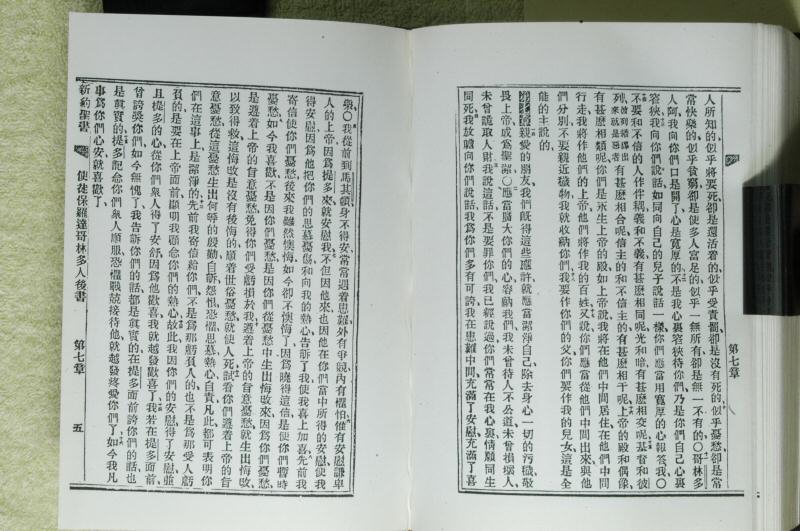 人所知的似乎將要死卻是還活着的似乎受責罰卻是沒有死的似乎憂愁卻是常
常快樂的似乎貧窮卻是使多人富足的似乎一無所有卻是無一不有的○哥林多
人阿我向你們口是開了心是寬厚的不是我心裏容狹待你們乃是你們自己心裏
容狹我向你們說話如同向自己的兒子說話一樣你們應當用寬厚的心報答我○
不要和不信的人作伴耦義和不義有甚麽相同呢光和暗有甚麽相交呢基督和彼
列有甚麽相合呢信主的和不信主的有甚麽相干呢上帝的殿和偶像
有甚麽相類呢你們是永生上帝的殿如上帝說我將在他們中間居住在他們中間
行走我將作他們的上帝他們將作我的百姓又說你們應當從他們中間出來與他
們分別不要親近穢物我就收納你們我要作你們的父你們要作我的兒女這是全
能的主說的
第七章親愛的朋友我們既得這些應許就應當潔淨自己除去身心一切的污穢敬
畏上帝成爲聖潔○應當廣大你們的心容納我們我未曾待人不公道未曾損壞人
未曾詭取人財我說這話不是要罪你們我已經說過你們常常在我心裏情願同生
同死我放膽向你們說話我爲你們多有可誇我在患難中間充滿了安慰充滿了喜
第七章
樂○我從前到馬其頓身不得安常常遇着患難外有爭競內有懼怕惟有安慰謙卑
人的上帝因爲提多來就安慰我不但因他來也因他在你們當中所得的安慰使我
得安慰因爲他把你們的思慕憂傷和向我的熱心告訴了我使我更加喜先前我
寄信使你們憂愁後來我雖然懊悔如今卻不懊悔了因爲曉得這信是使你們暫時
憂愁如今我歡喜不是因你們憂愁是因你們從憂愁中生出悔改來因爲你們憂愁
是遵着上帝的旨意憂愁免得你們受虧損於我遵着上帝的旨意憂愁就生出悔改
以致得救這悔改是沒有後悔的順着世俗憂愁就使人死試看你們遵着上帝的旨
意憂愁從這憂愁生出何等的殷勤自訴怨恨恐懼思慕熱心自責凡此都可表明你
們在這事上是潔淨的先前我寄信給你們不是爲那虧負人的也不是爲那受人虧
負的是要在上帝面前顯明我顧念你們的熱心故此我因你們的安慰得了安慰並
且提多的心從你們衆人得了安舒因爲他歡喜我就越發歡喜了我若在提多面前
曾誇獎你們如今無愧了我告訴你們的話都是眞實的在提多面前誇你們的話也
是眞實的提多記念你們衆人順服恐懼戰兢接待他就越發疼愛你們了如今我凡
事爲你們心安就喜歡了
新約聖書 使徒保羅達哥林多人後書 第七章 五